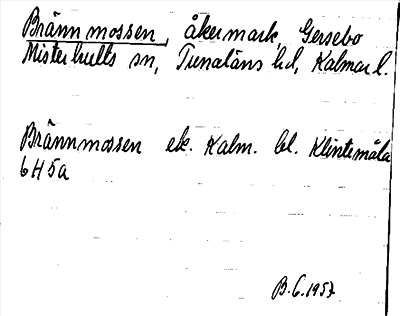 Brännmossen, åkermark, Gersebo
Misterhults sn, Tunaläns hd, Kalmar l.
Brännmossen ek. Kalm. bl. Klintemåla
6H5a
B.G. 1957